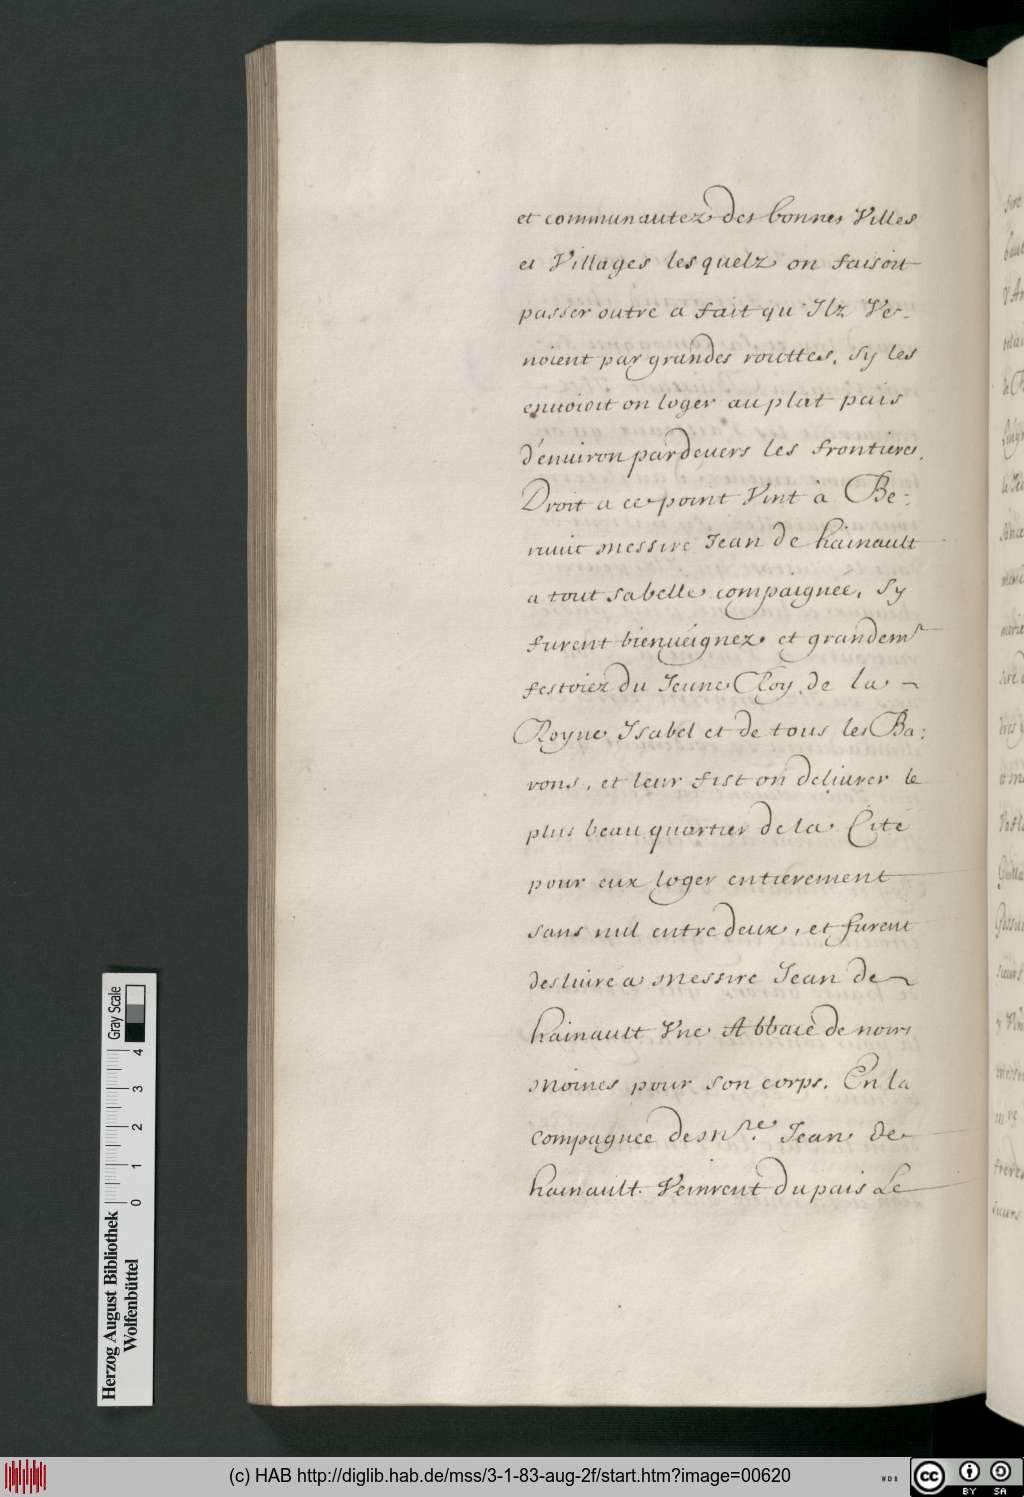 et communautez des bonnes Villes
et Villages lesquelz on faisoit
passer outre a fait qu'Ilz Ve-
noient par grandes routtes, sy les
enuoioit on loger au plat pais
d'enuiron pardeuers les frontieres.
Droit a ce point Vint à Be:
ruuic messire Jean de hainault
a tout sa belle compaignée, sy
furent bienueignez et grandemt
festoiez du Jeune Roy, de la
Royne Isabel et de tous les Ba:
rons, et leur fist on deliurer le
plus beau quartier de la Cité
pour eux loger entierement
sans nul entre deux, et furent
desliuré a messire Jean de
hainault Vne Abbaie de noirs
moines pour son corps. En la
compagnee de mre. Jean de
hainault. Veinrent du pais Le
Herzog August Bibliothek
Wolfenbüttel
0 1 2 3 4
Gray Scale
(c) HAB http://diglib.hab.de/mss/3-1-83-aug-2f/start.htm?image=00620
WDB
cc BY SA